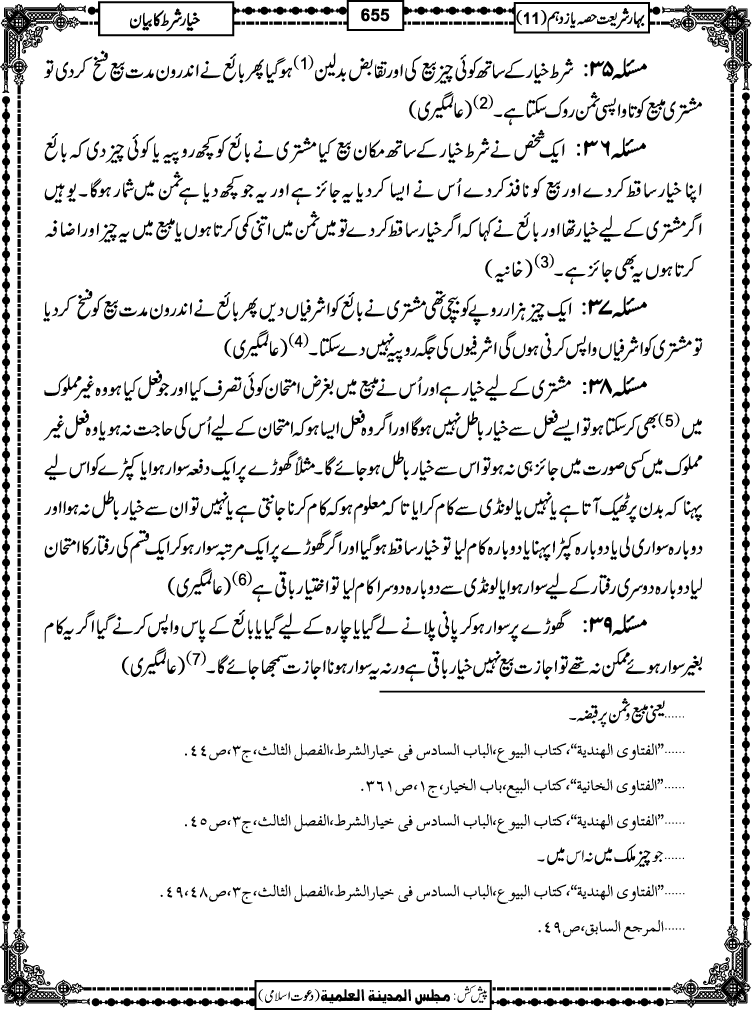 بہارِ شریعت حصہ یازدہم (11)
655
خیار شرط کا بیان
مسئلہ ۳۵: شرط خیار کے ساتھ کوئی چیز بیع کی اور تقابض بدلین (1) ہوگیا پھر بائع نے اندرون مدت بیع فسخ کردی تو
مشتری مبیع کو تا واپسی ثمن روک سکتا ہے۔ (2) (عالمگیری)
مسئلہ ۳۶: ایک شخص نے شرط خیار کے ساتھ مکان بیع کیا مشتری نے بائع کو کچھ روپیہ یا کوئی چیز دی کہ بائع
اپنا خیار ساقط کردے اور بیع کو نافذ کردے اُس نے ایسا کردیا یہ جائز ہے اور یہ جو کچھ دیا ہے ثمن میں شمار ہوگا۔ یوہیں
اگر مشتری کے لیے خیار تھا اور بائع نے کہا کہ اگر خیار ساقط کردے تو میں ثمن میں اتنی کمی کرتا ہوں یا مبیع میں یہ چیز اور اضافہ
کرتا ہوں یہ بھی جائز ہے۔ (3) (خانیہ)
مسئلہ ۳۷: ایک چیز ہزار روپے کو بیچی تھی مشتری نے بائع کو اشرفیاں دیں پھر بائع نے اندرون مدت بیع کو فسخ کردیا
تو مشتری کو اشرفیاں واپس کرنی ہوں گی اشرفیوں کی جگہ روپیہ نہیں دے سکتا۔ (4) (عالمگیری)
مسئلہ ۳۸: مشتری کے لیے خیار ہے اور اُس نے مبیع میں بغرض امتحان کوئی تصرف کیا اور جو فعل کیا ہو وہ غیر مملوک
میں (5) بھی کرسکتا ہو تو ایسے فعل سے خیار باطل نہیں ہوگا اور اگر وہ فعل ایسا ہو کہ امتحان کے لیے اُس کی حاجت نہ ہو یا وہ فعل غیر
مملوک میں کسی صورت میں جائز ہی نہ ہو تو اس سے خیار باطل ہو جائے گا۔ مثلاً گھوڑے پر ایک دفعہ سوار ہوا یا کپڑے کو اس لیے
پہنا کہ بدن پر ٹھیک آتا ہے یا نہیں یا لونڈی سے کام کرایا تا کہ معلوم ہو کہ کام کرنا جانتی ہے یا نہیں تو ان سے خیار باطل نہ ہوا اور
دوبارہ سواری لی یا دوبارہ کپڑا پہنا یا دوبارہ کام لیا تو خیار ساقط ہوگیا اور اگر گھوڑے پر ایک مرتبہ سوار ہو کر ایک قسم کی رفتار کا امتحان
لیا دوبارہ دوسری رفتار کے لیے سوار ہوا یا لونڈی سے دوبارہ دوسرا کام لیا تو اختیار باقی ہے (6) (عالمگیری)
مسئلہ ۳۹: گھوڑے پر سوار ہو کر پانی پلانے لے گیا یا چارہ کے لیے گیا یا بائع کے پاس واپس کرنے گیا اگر یہ کام
بغیر سوار ہوئے ممکن نہ تھے تو اجازت بیع نہیں خیار باقی ہے ورنہ یہ سوار ہونا اجازت سمجھا جائے گا۔ (7) (عالمگیری)
......یعنی مبیع و ثمن پر قبضہ۔
......"الفتاوی الهندیة"، کتاب البیوع، الباب السادس فی خیار الشرط، الفصل الثالث، ج۳، ص۴۴.
......"الفتاوی الخانیة"، کتاب البیع، باب الخیار، ج۱، ص۳۶۱.
......"الفتاوی الهندیة"، کتاب البیوع، الباب السادس فی خیار الشرط، الفصل الثالث، ج۳، ص۴۵.
......جو چیز ملک میں نہ اس میں۔
......"الفتاوی الهندیة"، کتاب البیوع، الباب السادس فی خیار الشرط، الفصل الثالث، ج۳، ص۴۸، ۴۹.
......المرجع السابق، ص۴۹.
پیش کش: مجلس المدینة العلمیة (دعوت اسلامی)